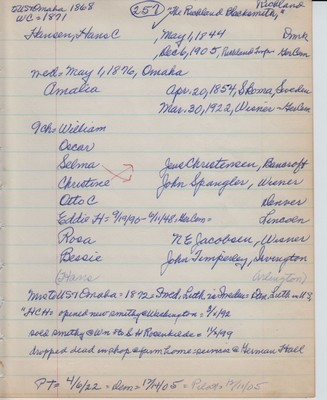 to US Omaha 1868
WC = 1871
257
"The Richland Blacksmith,"
Richland
Hansen, Hans C
, May 1, 1844
Dmk
, Dec 6, 1905, Richland Twp -
wed = May 1, 1876, Omaha
Amalia
Apr. 20, 1854, Skone, Sweden
Mar. 30, 1922, Wisner -
9 ch = William
Oscar
Selma
Jens Christensen, Bancroft
Christine
John Spangler, Wisner
Otto C
Denver
Eddie H = 9/19/90 - 9/11/48
Lincoln
Rosa
N E Jacobsen, Wisner
Bessie
John Timperley, Irvington
Hans
(Arlington)
Omaha = 1872 = Dan. Luth in US
"HCH = opened new smithy @ Washington = 5/6/92
sold smithy @ Wn to L H Rosenkiede = 1/6/99
dropped dead in shop @ farm home = service @ Herman Hall
Pt = 4/6/22 = Dem = 12/14/05 = Pilot = 12/12/05